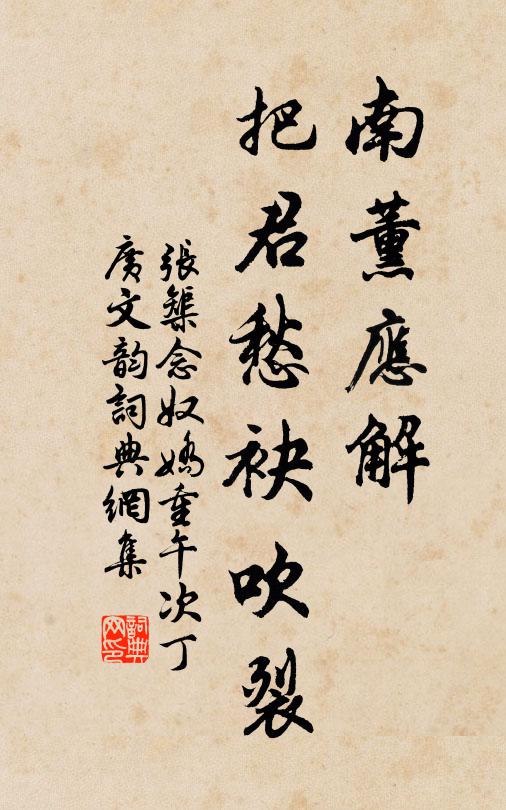 南薰應解
把君愁袂吹裂
張榘念奴嬌重午次丁
廣文韵詞典網集
詞典
网印